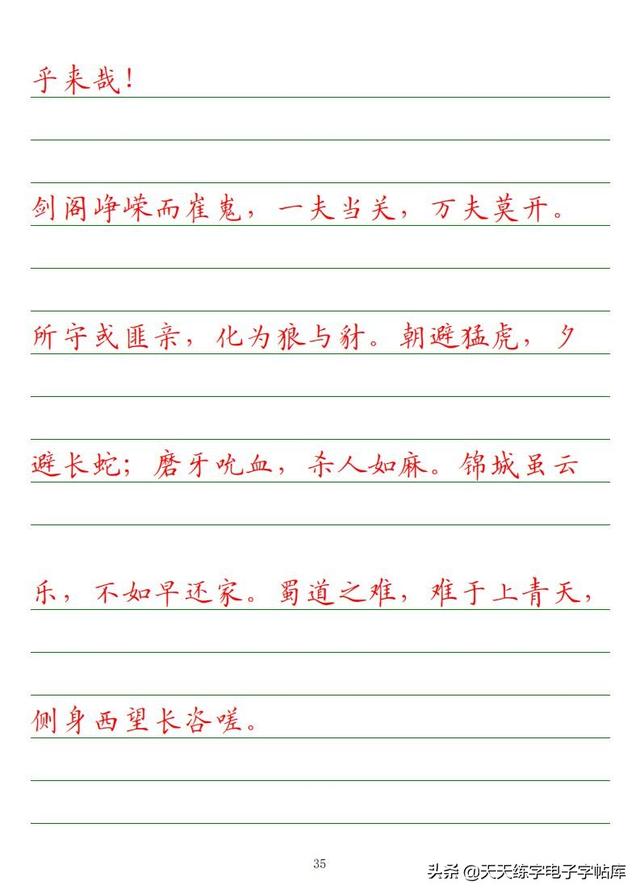 乎来哉！
剑阁峥嵘而崔嵬，一夫当关，万夫莫开。
所守或匪亲，化为狼与豺。朝避猛虎，夕
避长蛇；磨牙吮血，杀人如麻。锦城虽云
乐，不如早还家。蜀道之难，难于上青天，
侧身西望长咨嗟。
35
头条 @天天练字电子字帖库